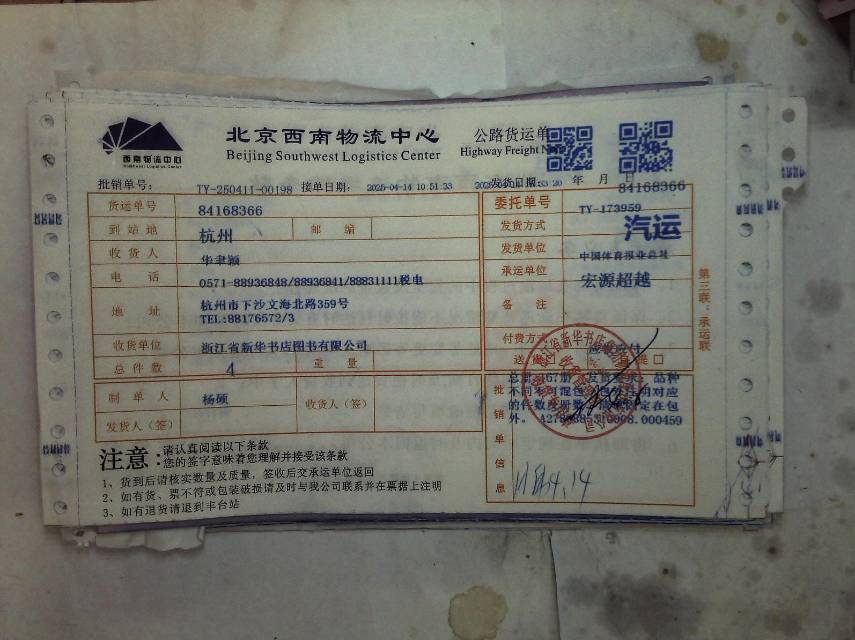 西南物流中心
北京西南物流中心
Beijing Southwest Logistics Center
公路货运单
Highway Freight
批销单号: TY-250411-00198 接单日期: 2025-04-14 10:51:33 发货日期: 年 月 日
84168366
货运单号 84168366 委托单号 TY-173959
到站地 杭州 邮编 发货方式 汽运
收货人 华聿颖 发货单位 中国体育报业总社
电话 0571-88936848/88936841/88831111税电 承运单位 宏源超越
地址 杭州市下沙文海北路359号
TEL:88176572/3
备注
收货单位 浙江省新华书店图书有限公司 付费方式
总件数 4 重量
制单人 杨硕 收货人(签)
发货人(签)
批销单信息
品种
不同不可混包
对应
的件数
在包
外。
注意:请认真阅读以下条款
您的签字意味着您理解并接受该条款
1、货到后请核实数量及质量,签收后交承运单位返回
2、如有货、票不符或包装破损请及时与我公司联系并在票据上注明
3、如有退货请退到丰台站
第三联:承运联